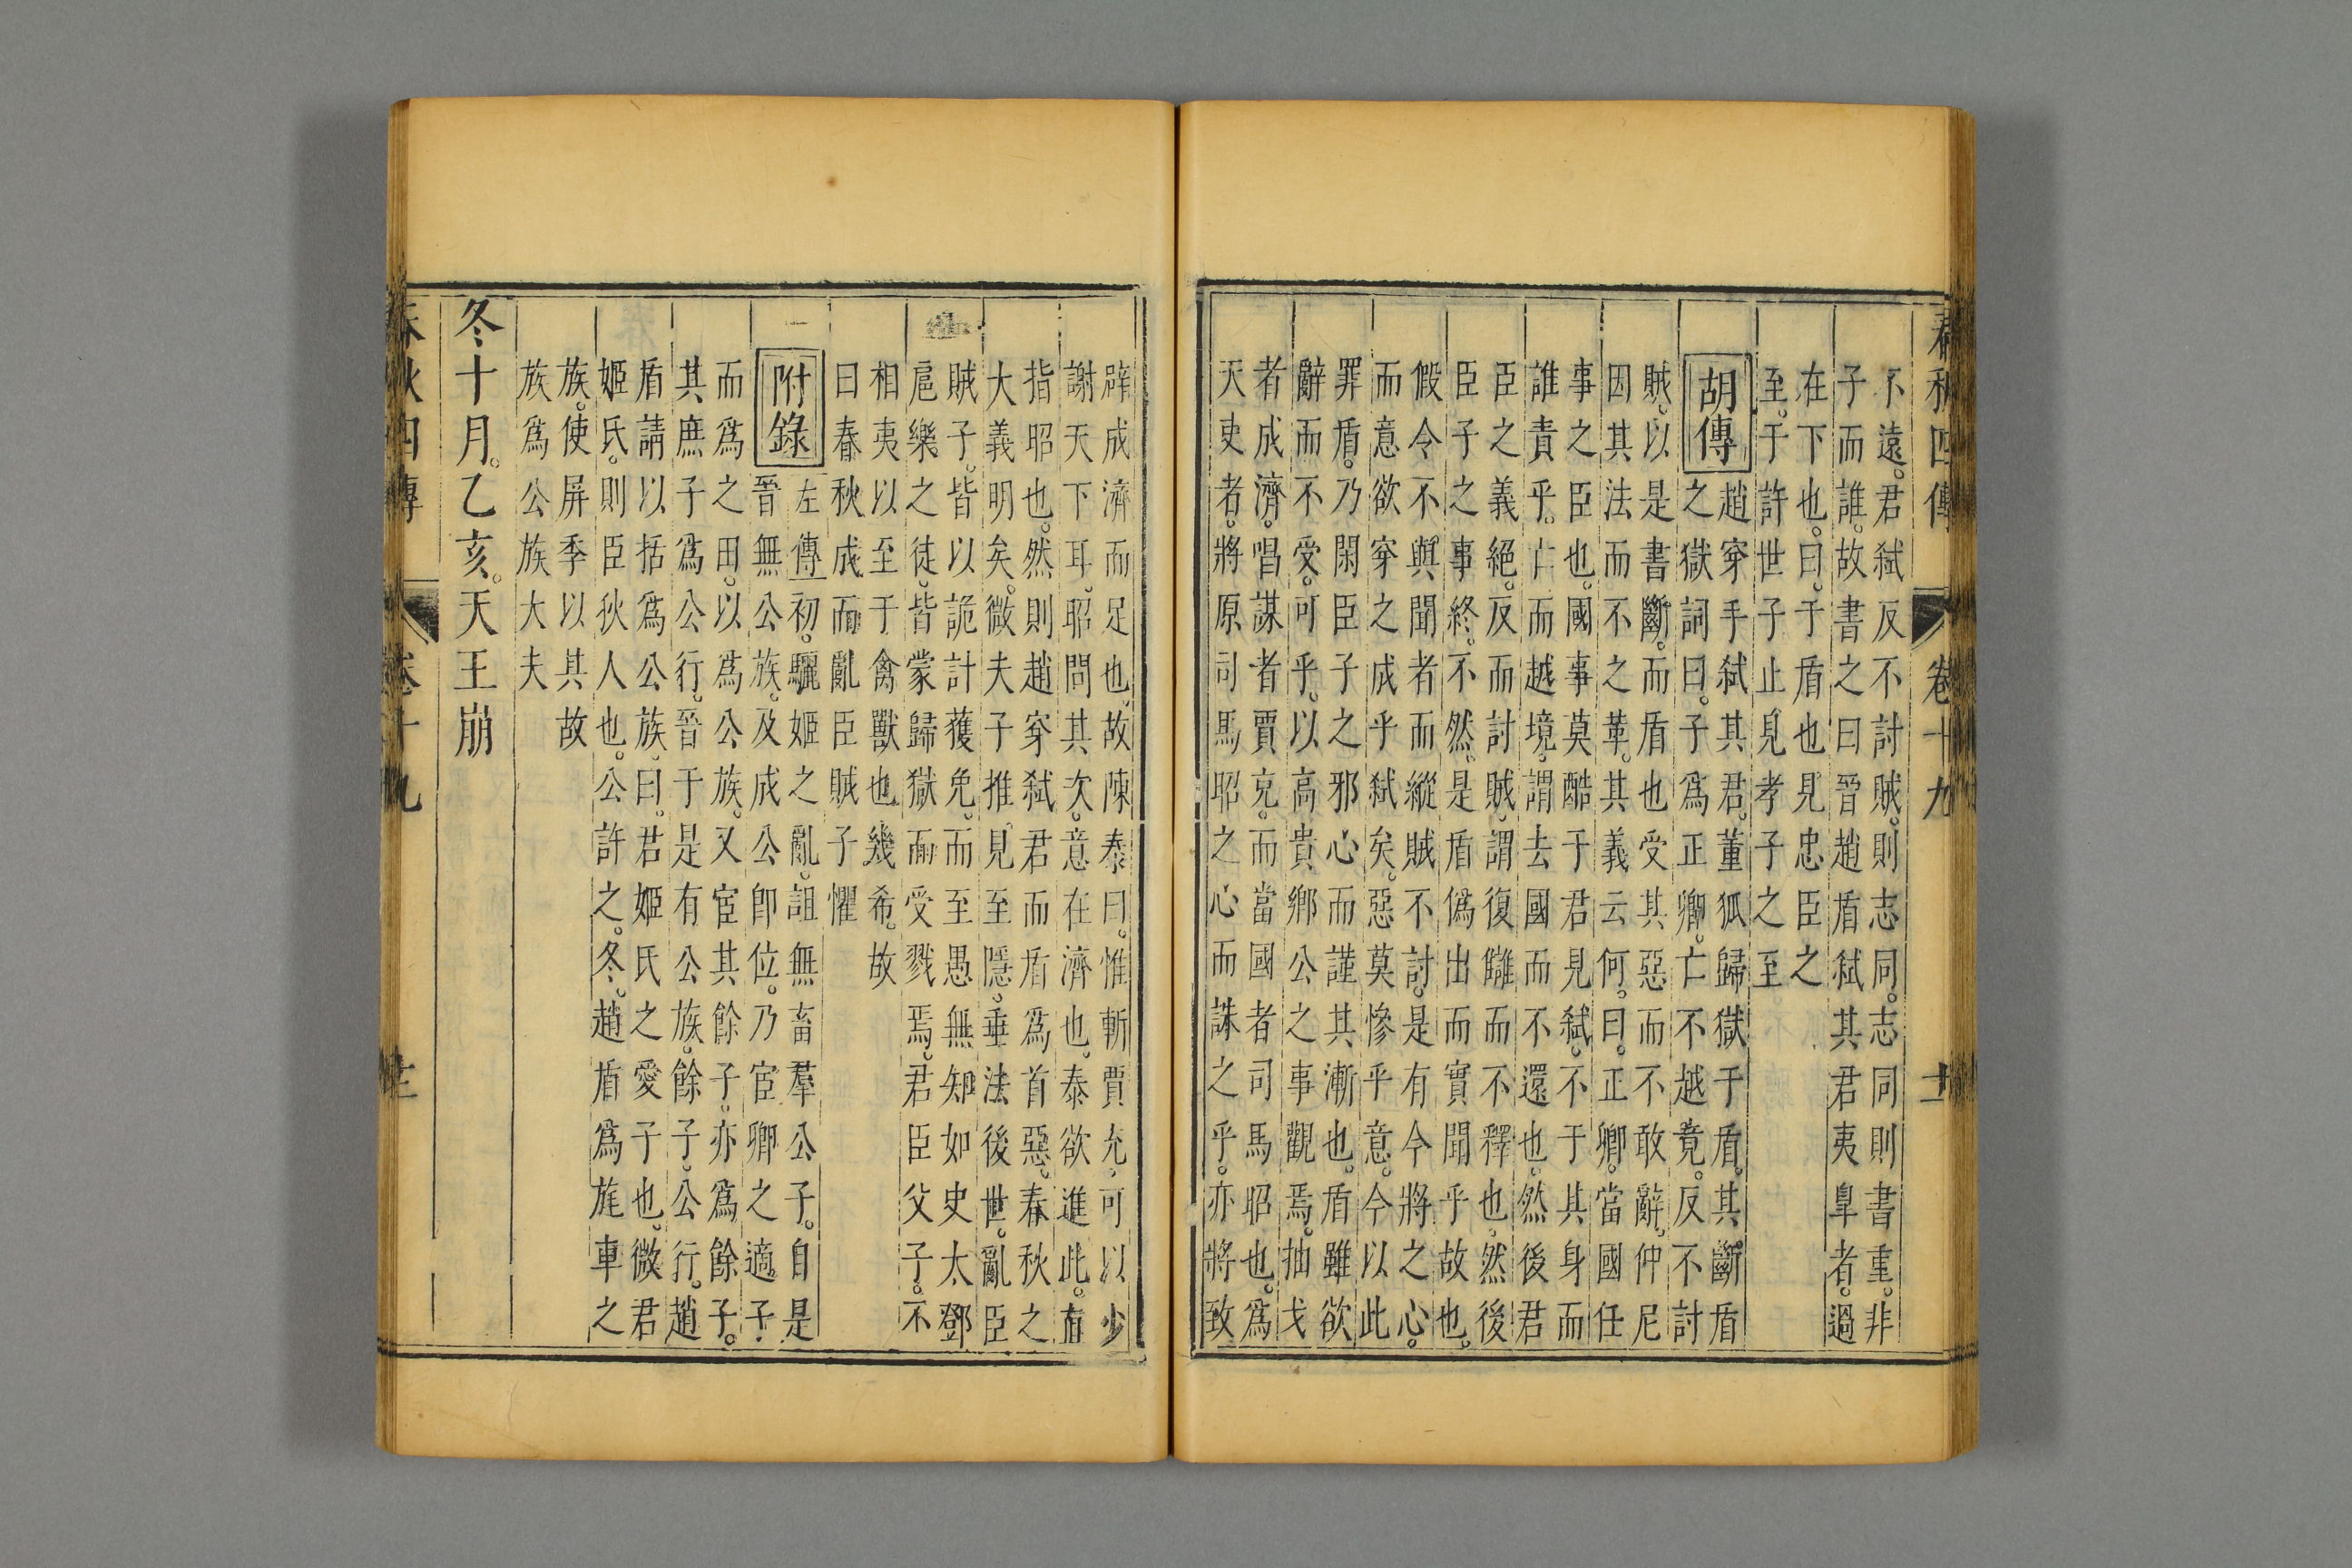 春秋四傳 卷十九
不遠君弑反不討賊則志同志同則書重非
子而誰故書之曰晉趙盾弑其君夷臯者過
在下也曰于盾也見忠臣之
至于許世子止見孝子之至
胡傳
趙穿手弑其君董狐歸獄于盾其斷盾
之獄詞曰子爲正卿亡不越竟反不討
賊以是書斷而盾也受其惡而不敢辭仲尼
因其法而不之革其義云何曰正卿當國任
事之臣也國事莫酷于君見弑不于其身而
誰責乎亡而越境謂去國而不還也然後君
臣之義絕反而討賊謂復讎而不釋也然後
臣子之事終不然是盾偽出而實聞乎故也
假令不與聞者而縱賊不討是有今將之心
而意欲穿之成乎弑矣惡莫慘乎意今以此
罪盾乃閑臣子之邪心而謹其漸也盾雖欲
辭而不受可乎以高貴鄉公之事觀焉抽戈
者成濟唱謀者賈充而當國者司馬昭也爲
天吏者將原司馬昭之心而誅之乎亦將致
辟成濟而足也故陳泰曰惟斬賈充可以少
謝天下耳昭問其次意在濟也泰欲進此直
指昭也然則趙穿弑君而盾爲首惡春秋之
大義明矣微夫子推見至隱垂法後世亂臣
賊子皆以詭計獲免而至愚無知如史太鄧
扈樂之徒皆蒙歸獄而受戮焉君臣父子不
相夷以至于禽獸也幾希故
曰春秋成而亂臣賊子懼
附錄
左傳初驪姬之亂詛無畜羣公子自是
晉無公族及成公即位乃宦卿之適子
而爲之田以爲公族又宦其餘子亦爲餘子
其庶子爲公行晉于是有公族餘子公行趙
盾請以括爲公族曰君姬氏之愛子也微君
姬氏則臣狄人也公許之冬趙盾爲旄車之
族使屏季以其故
族爲公族大夫
冬十月乙亥天王崩
春秋四傳 卷十九